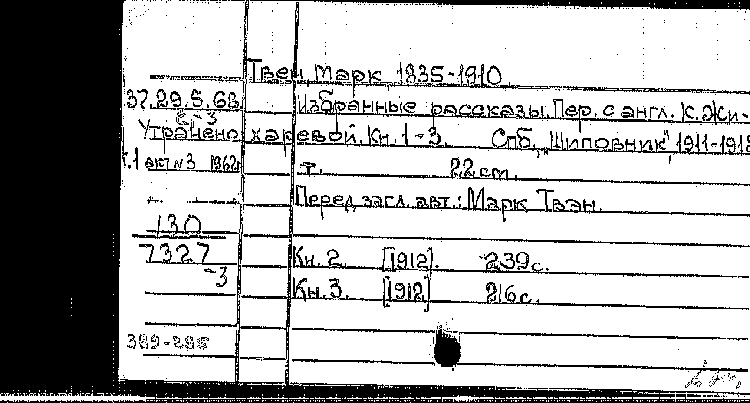 Твен, Марк 1835-1910.
37.29.5.68. Избранные рассказы. Пер. с англ. К. Жи-
2-3
Утрачено харевой. Кн. 1-3. Спб, "Шиповник", 1911-191
к.1 акт №3 1962г т. 22 cm.
Перед загл. авт.: Марк Твэн.
130
7327
-3
Кн. 2. [1912]. 239 с.
Кн. 3. [1912] 216 с.